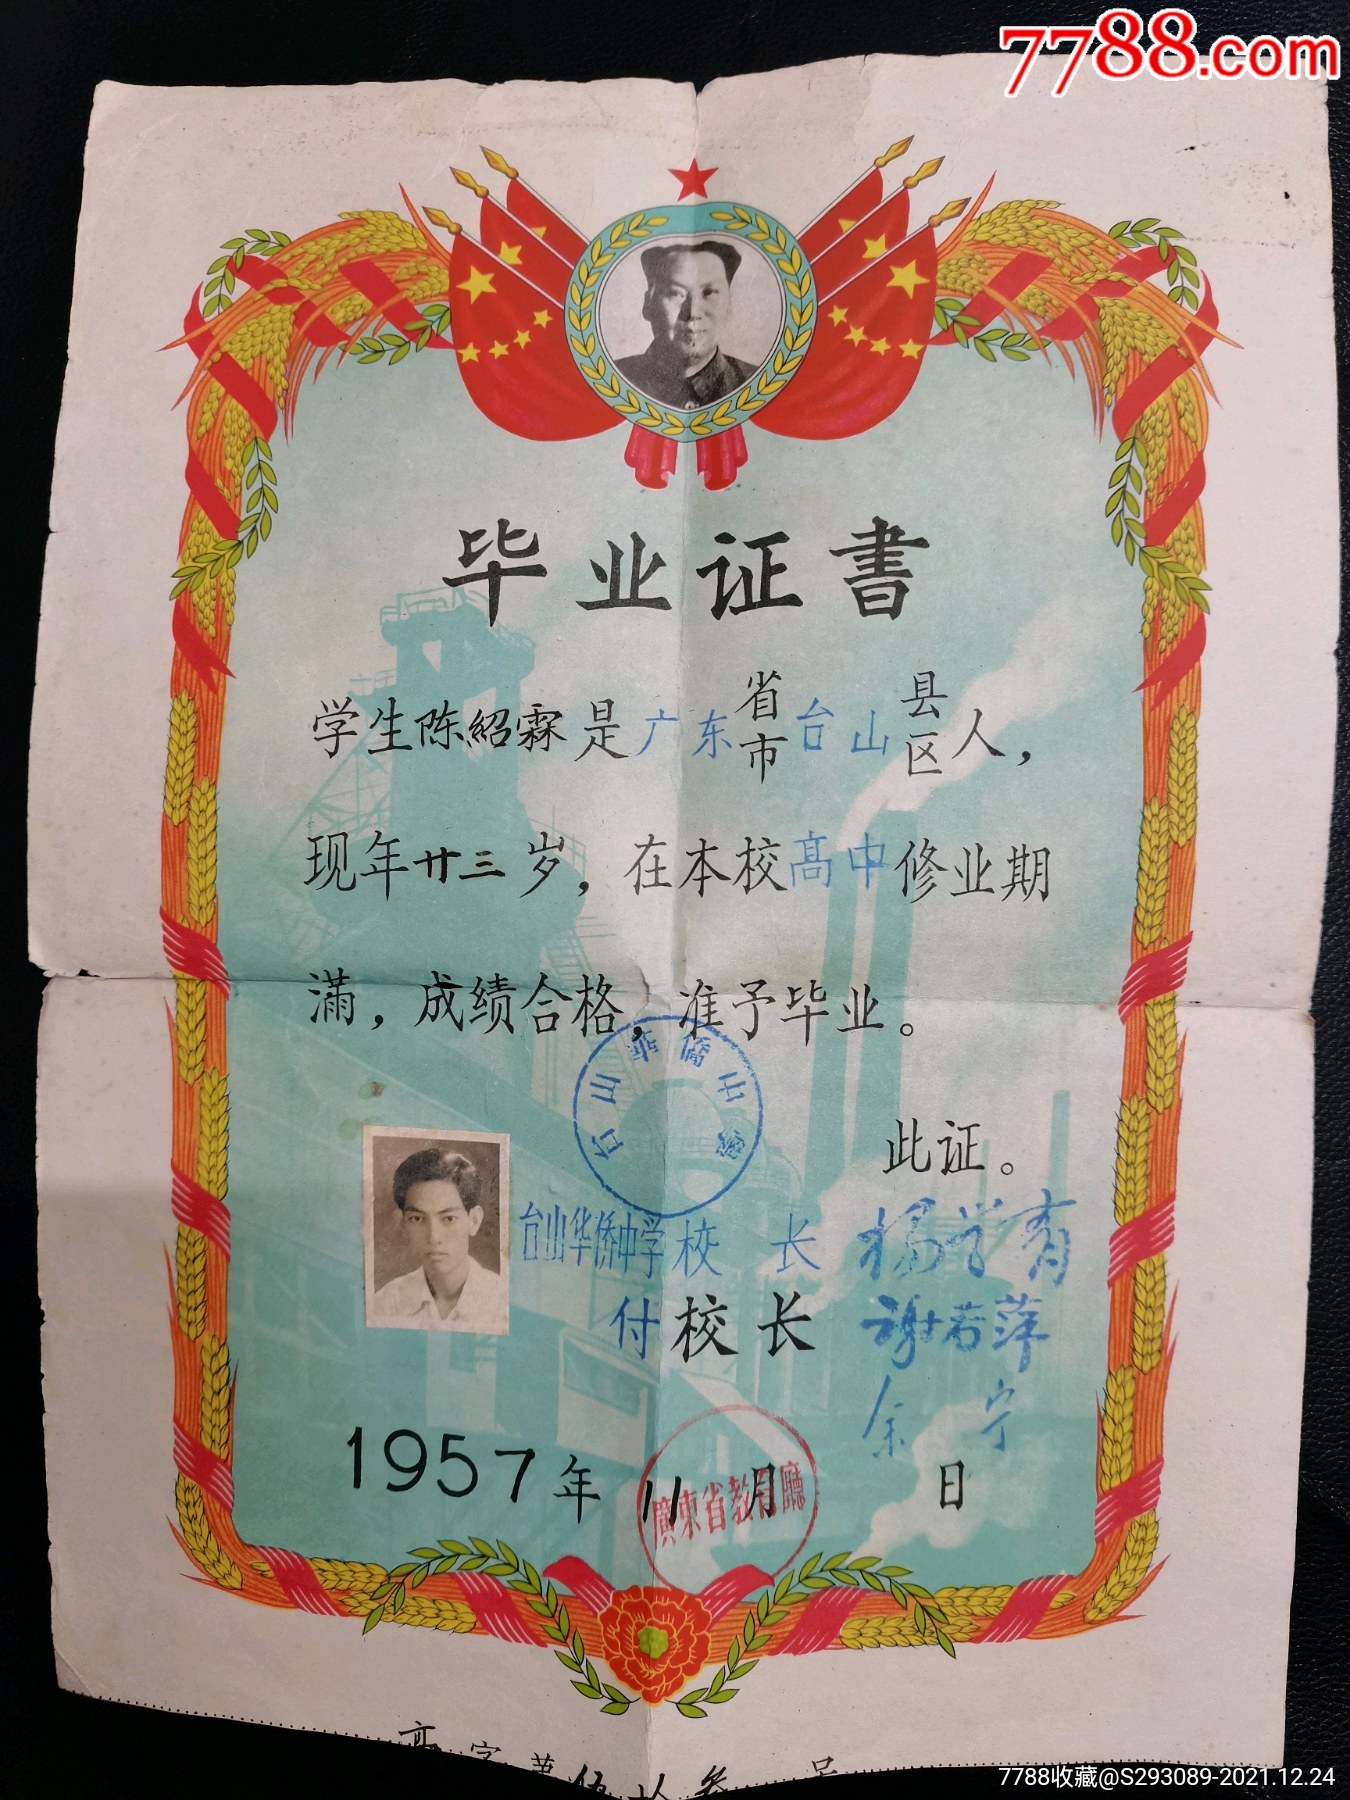 7788.com
毕业证書
学生陈紹霖是广东省市台山县区人，
现年廿三岁，在本校高中修业期
满，成绩合格，准予毕业。
台山華僑中學
此证。
台山华侨中学校长 杨学育
付校长 谢若萍
余宁
1957年11月 日
廣東省教育廳
字第 号
7788收藏@S293089-2021.12.24